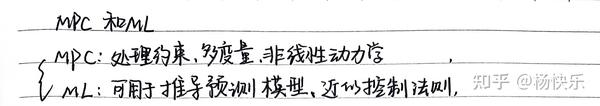 MPC 和 ML
MPC: 处理约束,多变量,非线性动力学,
ML: 可用于推导预测模型、近似控制法则,
知乎 @杨快乐